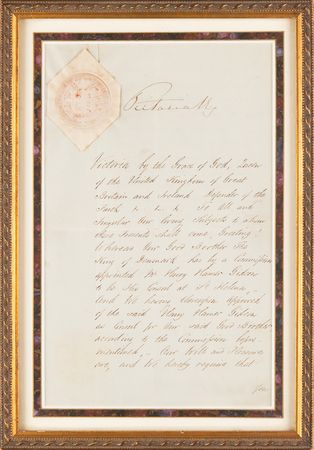 Victoria R
Victoria by the Grace of God, Queen
of the United Kingdom of Great
Britain and Ireland Defender of the
Faith &c &c &c To all and
Singular Our loving Subjects to whom
these Presents shall come, Greeting!
Whereas Our Good Brother The
King of Denmark has by a Commission
appointed Mr Henry
to be His Consul at St Helena,
And We having thereupon approved
of the said Henry
as Consul for Our said Good Brother
according to the Commission before
mentioned, Our Will and Pleasure
are, and We hereby require that
you